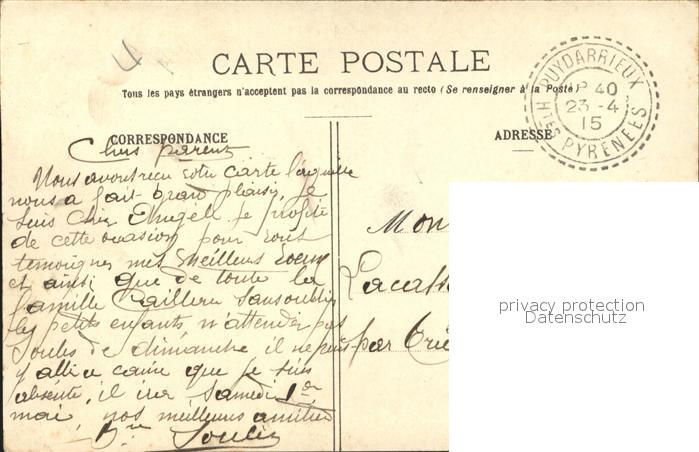 CARTE POSTALE
Tous les pays étrangers n'acceptent pas la correspondance au recto (Se renseigner à la Poste)
PUYDARRIEUX
40
23 - 4
15
HTES PYRENEES
CORRESPONDANCE
ADRESSE
Chers parent
Nous avons recu votre carte laquelle
nous a fait grand plaisir, je
suis chez Angèle je profite
de cette ocasion pour vous
temoigner mes meilleurs voeux
et ainsi que de toute la
famille sansoublier
les petits enfants n'attender pas
de dimanche il ne puis
y alle a cause que je suis
absente, il ira samedi 1er
mai, nos meilleurs amitier
Mon
Lacass
par Trie
privacy protection
Datenschutz